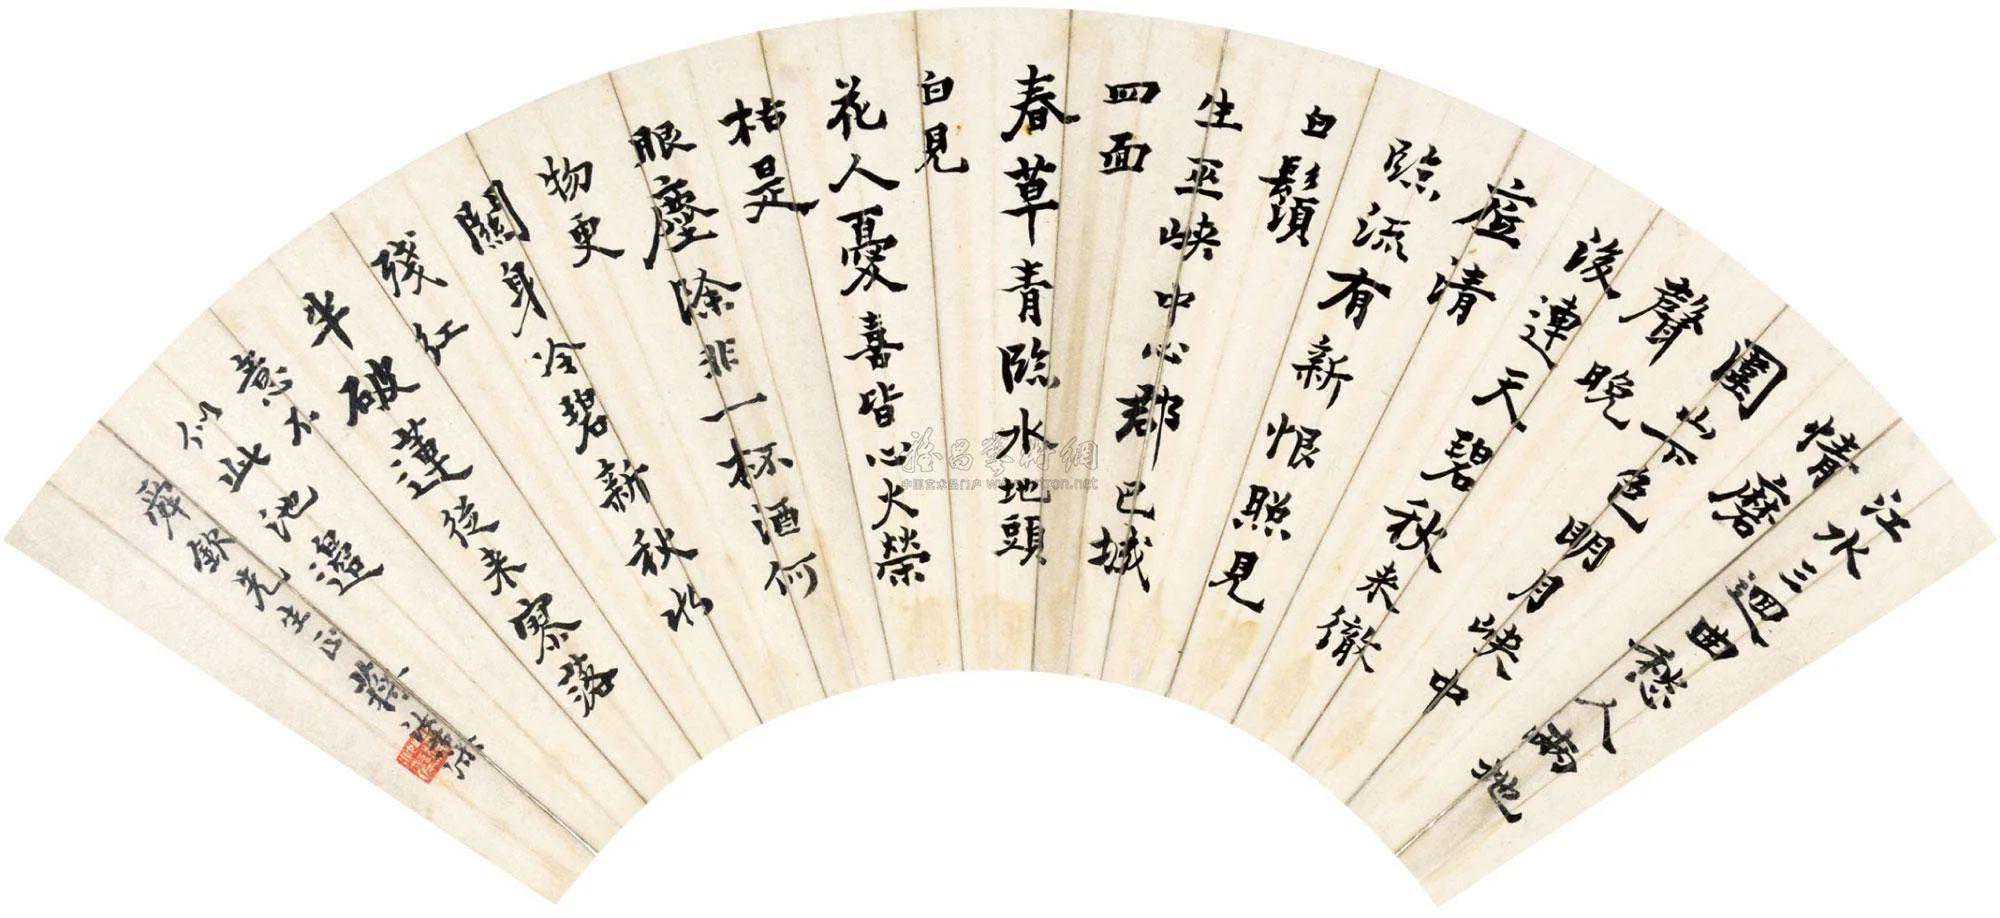 江水三迴曲愁人兩地
情磨
圍山下色明月峽中
聲晚
後連天碧秋来徹
底清
臨流有新恨照見
白鬚
生巫峽中心郡巴城
四面
春草青臨水地頭
白見
花人憂喜皆心火榮
枯是
眼塵除非一杯酒何
物更
關身冷碧新秋水
殘紅
半破蓮從来寥落
意不
似此池邉
舜欽先生正 蔣